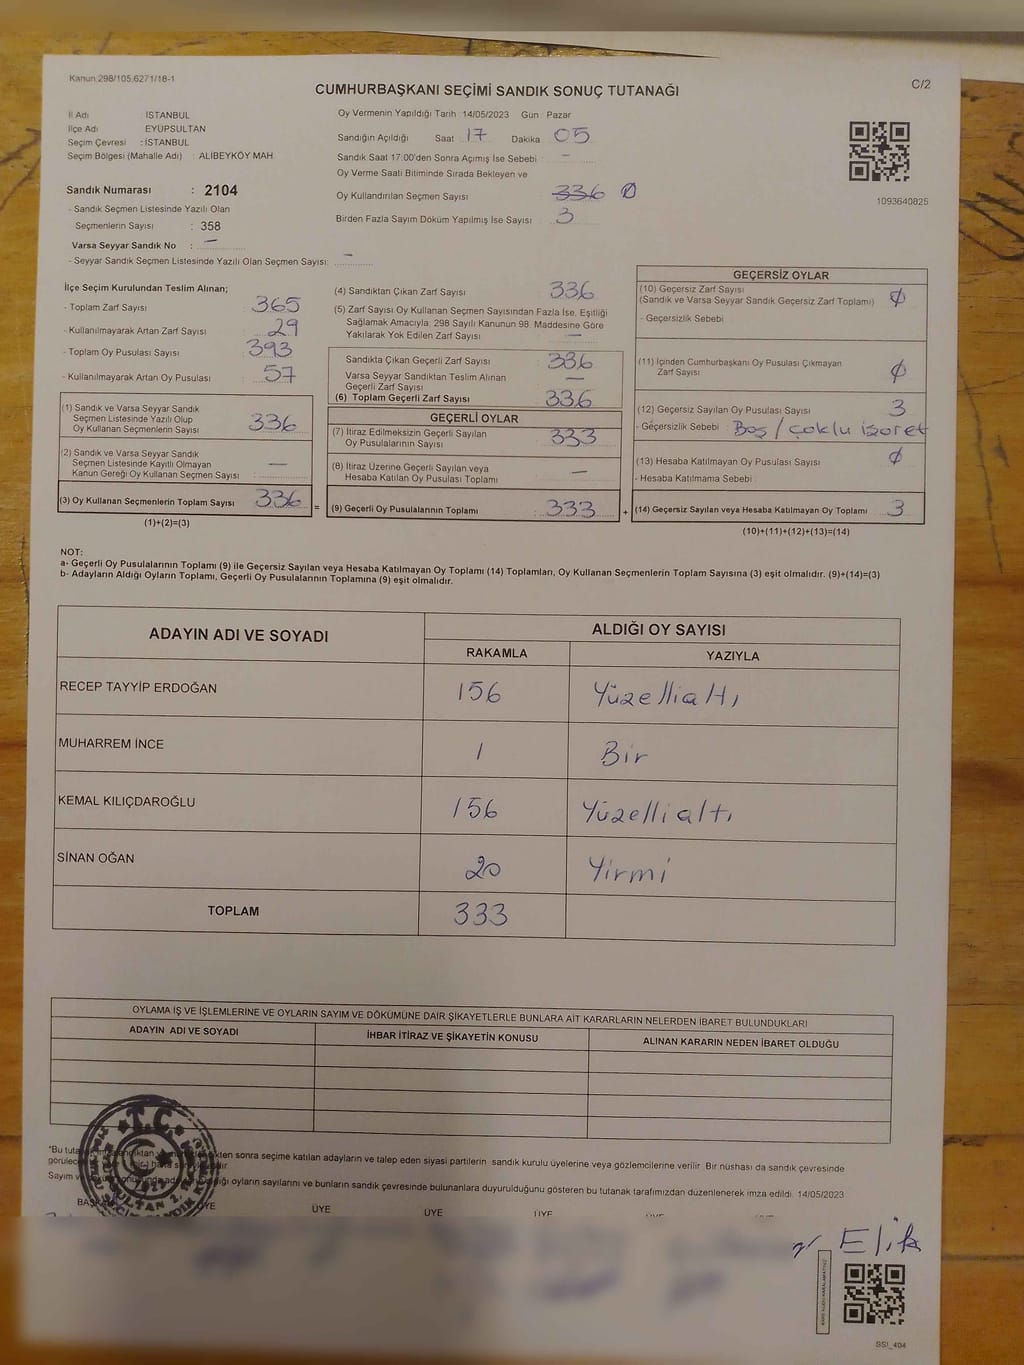 Kanun:298/105,6271/18-1
C/2
CUMHURBAŞKANI SEÇİMİ SANDIK SONUÇ TUTANAĞI
İl Adı İSTANBUL
İlçe Adı EYÜPSULTAN
Seçim Çevresi : İSTANBUL
Seçim Bölgesi (Mahalle Adı) : ALİBEYKÖY MAH
Sandık Numarası : 2104
- Sandık Seçmen Listesinde Yazılı Olan
Seçmenlerin Sayısı : 358
Varsa Seyyar Sandık No : —
- Seyyar Sandık Seçmen Listesinde Yazılı Olan Seçmen Sayısı: —
Oy Vermenin Yapıldığı Tarih : 14/05/2023 Gün : Pazar
Sandığın Açıldığı Saat 17 Dakika 05
Sandık Saat 17:00'den Sonra Açımış İse Sebebi : -
Oy Verme Saati Bitiminde Sırada Bekleyen ve
Oy Kullandırılan Seçmen Sayısı 336 Ø
Birden Fazla Sayım Döküm Yapılmış İse Sayısı : 3
1093640825
İlçe Seçim Kurulundan Teslim Alınan;
- Toplam Zarf Sayısı : 365
- Kullanılmayarak Artan Zarf Sayısı : 29
- Toplam Oy Pusulası Sayısı : 393
- Kullanılmayarak Artan Oy Pusulası : 57
(1) Sandık ve Varsa Seyyar Sandık
Seçmen Listesinde Yazılı Olup
Oy Kullanan Seçmenlerin Sayısı : 336
(2) Sandık ve Varsa Seyyar Sandık
Seçmen Listesinde Kayıtlı Olmayan
Kanun Gereği Oy Kullanan Seçmen Sayısı : —
(3) Oy Kullanan Seçmenlerin Toplam Sayısı 336 =
(1)+(2)=(3)
(4) Sandıktan Çıkan Zarf Sayısı : 336
(5) Zarf Sayısı Oy Kullanan Seçmen Sayısından Fazla İse, Eşitliği
Sağlamak Amacıyla, 298 Sayılı Kanunun 98. Maddesine Göre
Yakılarak Yok Edilen Zarf Sayısı : —
Sandıkta Çıkan Geçerli Zarf Sayısı : 336
Varsa Seyyar Sandıktan Teslim Alınan
Geçerli Zarf Sayısı : —
(6) Toplam Geçerli Zarf Sayısı : 336
GEÇERLİ OYLAR
(7) İtiraz Edilmeksizin Geçerli Sayılan
Oy Pusulalarının Sayısı : 333
(8) İtiraz Üzerine Geçerli Sayılan veya
Hesaba Katılan Oy Pusulası Toplamı : —
(9) Geçerli Oy Pusulalarının Toplamı : 333 +
GEÇERSİZ OYLAR
(10) Geçersiz Zarf Sayısı : Ø
(Sandık ve Varsa Seyyar Sandık Geçersiz Zarf Toplamı)
- Geçersizlik Sebebi :
(11) İçinden Cumhurbaşkanı Oy Pusulası Çıkmayan
Zarf Sayısı : Ø
(12) Geçersiz Sayılan Oy Pusulası Sayısı : 3
- Geçersizlik Sebebi : Boş / çoklu işaret
(13) Hesaba Katılmayan Oy Pusulası Sayısı : Ø
- Hesaba Katılmama Sebebi :
(14) Geçersiz Sayılan veya Hesaba Katılmayan Oy Toplamı : 3
(10)+(11)+(12)+(13)=(14)
NOT:
a- Geçerli Oy Pusulalarının Toplamı (9) ile Geçersiz Sayılan veya Hesaba Katılmayan Oy Toplamı (14) Toplamları, Oy Kullanan Seçmenlerin Toplam Sayısına (3) eşit olmalıdır. (9)+(14)=(3)
b- Adayların Aldığı Oyların Toplamı, Geçerli Oy Pusulalarının Toplamına (9) eşit olmalıdır.
ADAYIN ADI VE SOYADI
ALDIĞI OY SAYISI
RAKAMLA YAZIYLA
RECEP TAYYİP ERDOĞAN 156 Yüzellialtı
MUHARREM İNCE 1 Bir
KEMAL KILIÇDAROĞLU 156 Yüzellialtı
SİNAN OĞAN 20 Yirmi
TOPLAM 333
OYLAMA İŞ VE İŞLEMLERİNE VE OYLARIN SAYIM VE DÖKÜMÜNE DAİR ŞİKAYETLERLE BUNLARA AİT KARARLARIN NELERDEN İBARET BULUNDUKLARI
ADAYIN ADI VE SOYADI İHBAR İTİRAZ VE ŞİKAYETİN KONUSU ALINAN KARARIN NEDEN İBARET OLDUĞU
T.C.
*Bu sonra seçime katılan adayların ve talep eden siyasi partilerin sandık kurulu üyelerine veya gözlemcilerine verilir. Bir nüshası da sandık çevresinde
Sayım oyların sayılarını ve bunların sandık çevresinde bulunanlara duyurulduğunu gösteren bu tutanak tarafımızdan düzenlenerek imza edildi. 14/05/2023
ÜYE ÜYE ÜYE ÜYE
Elik
SSİ_404